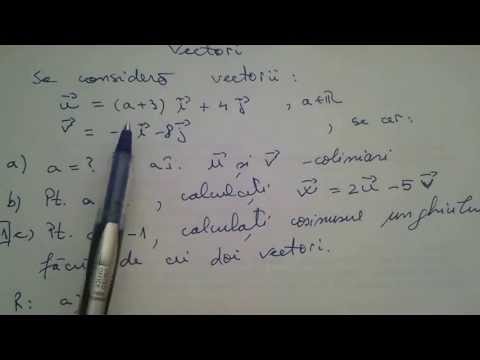 Vectori
Se consideră vectorii:
u⃗ = (a+3) i⃗ + 4 j⃗ , a∈ℝ
v⃗ = - i⃗ -8j⃗ , se cer:
a) a=? aî. u⃗ și v⃗ -coliniari
b) Pt. a , calculați w⃗ = 2u⃗ -5 v⃗
c) Pt. -1, calculați cosinusul
de cei doi vectori.
R: a)